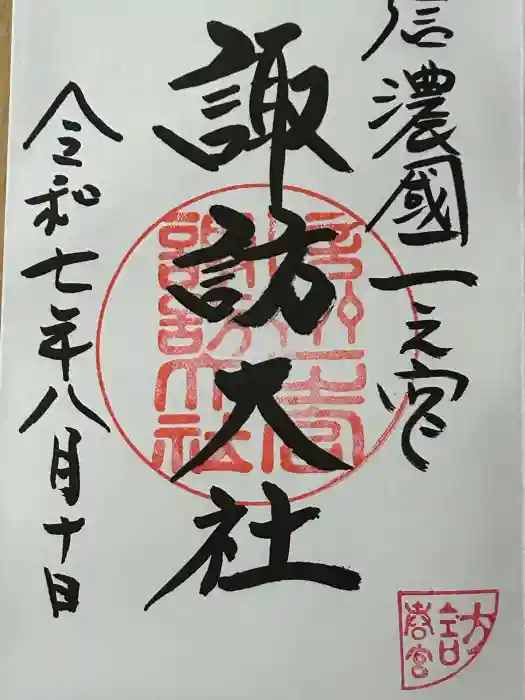 信濃國一之宮
諏訪大社
令和七年八月十日
信州一之宮
諏訪大社
諏訪
春宮